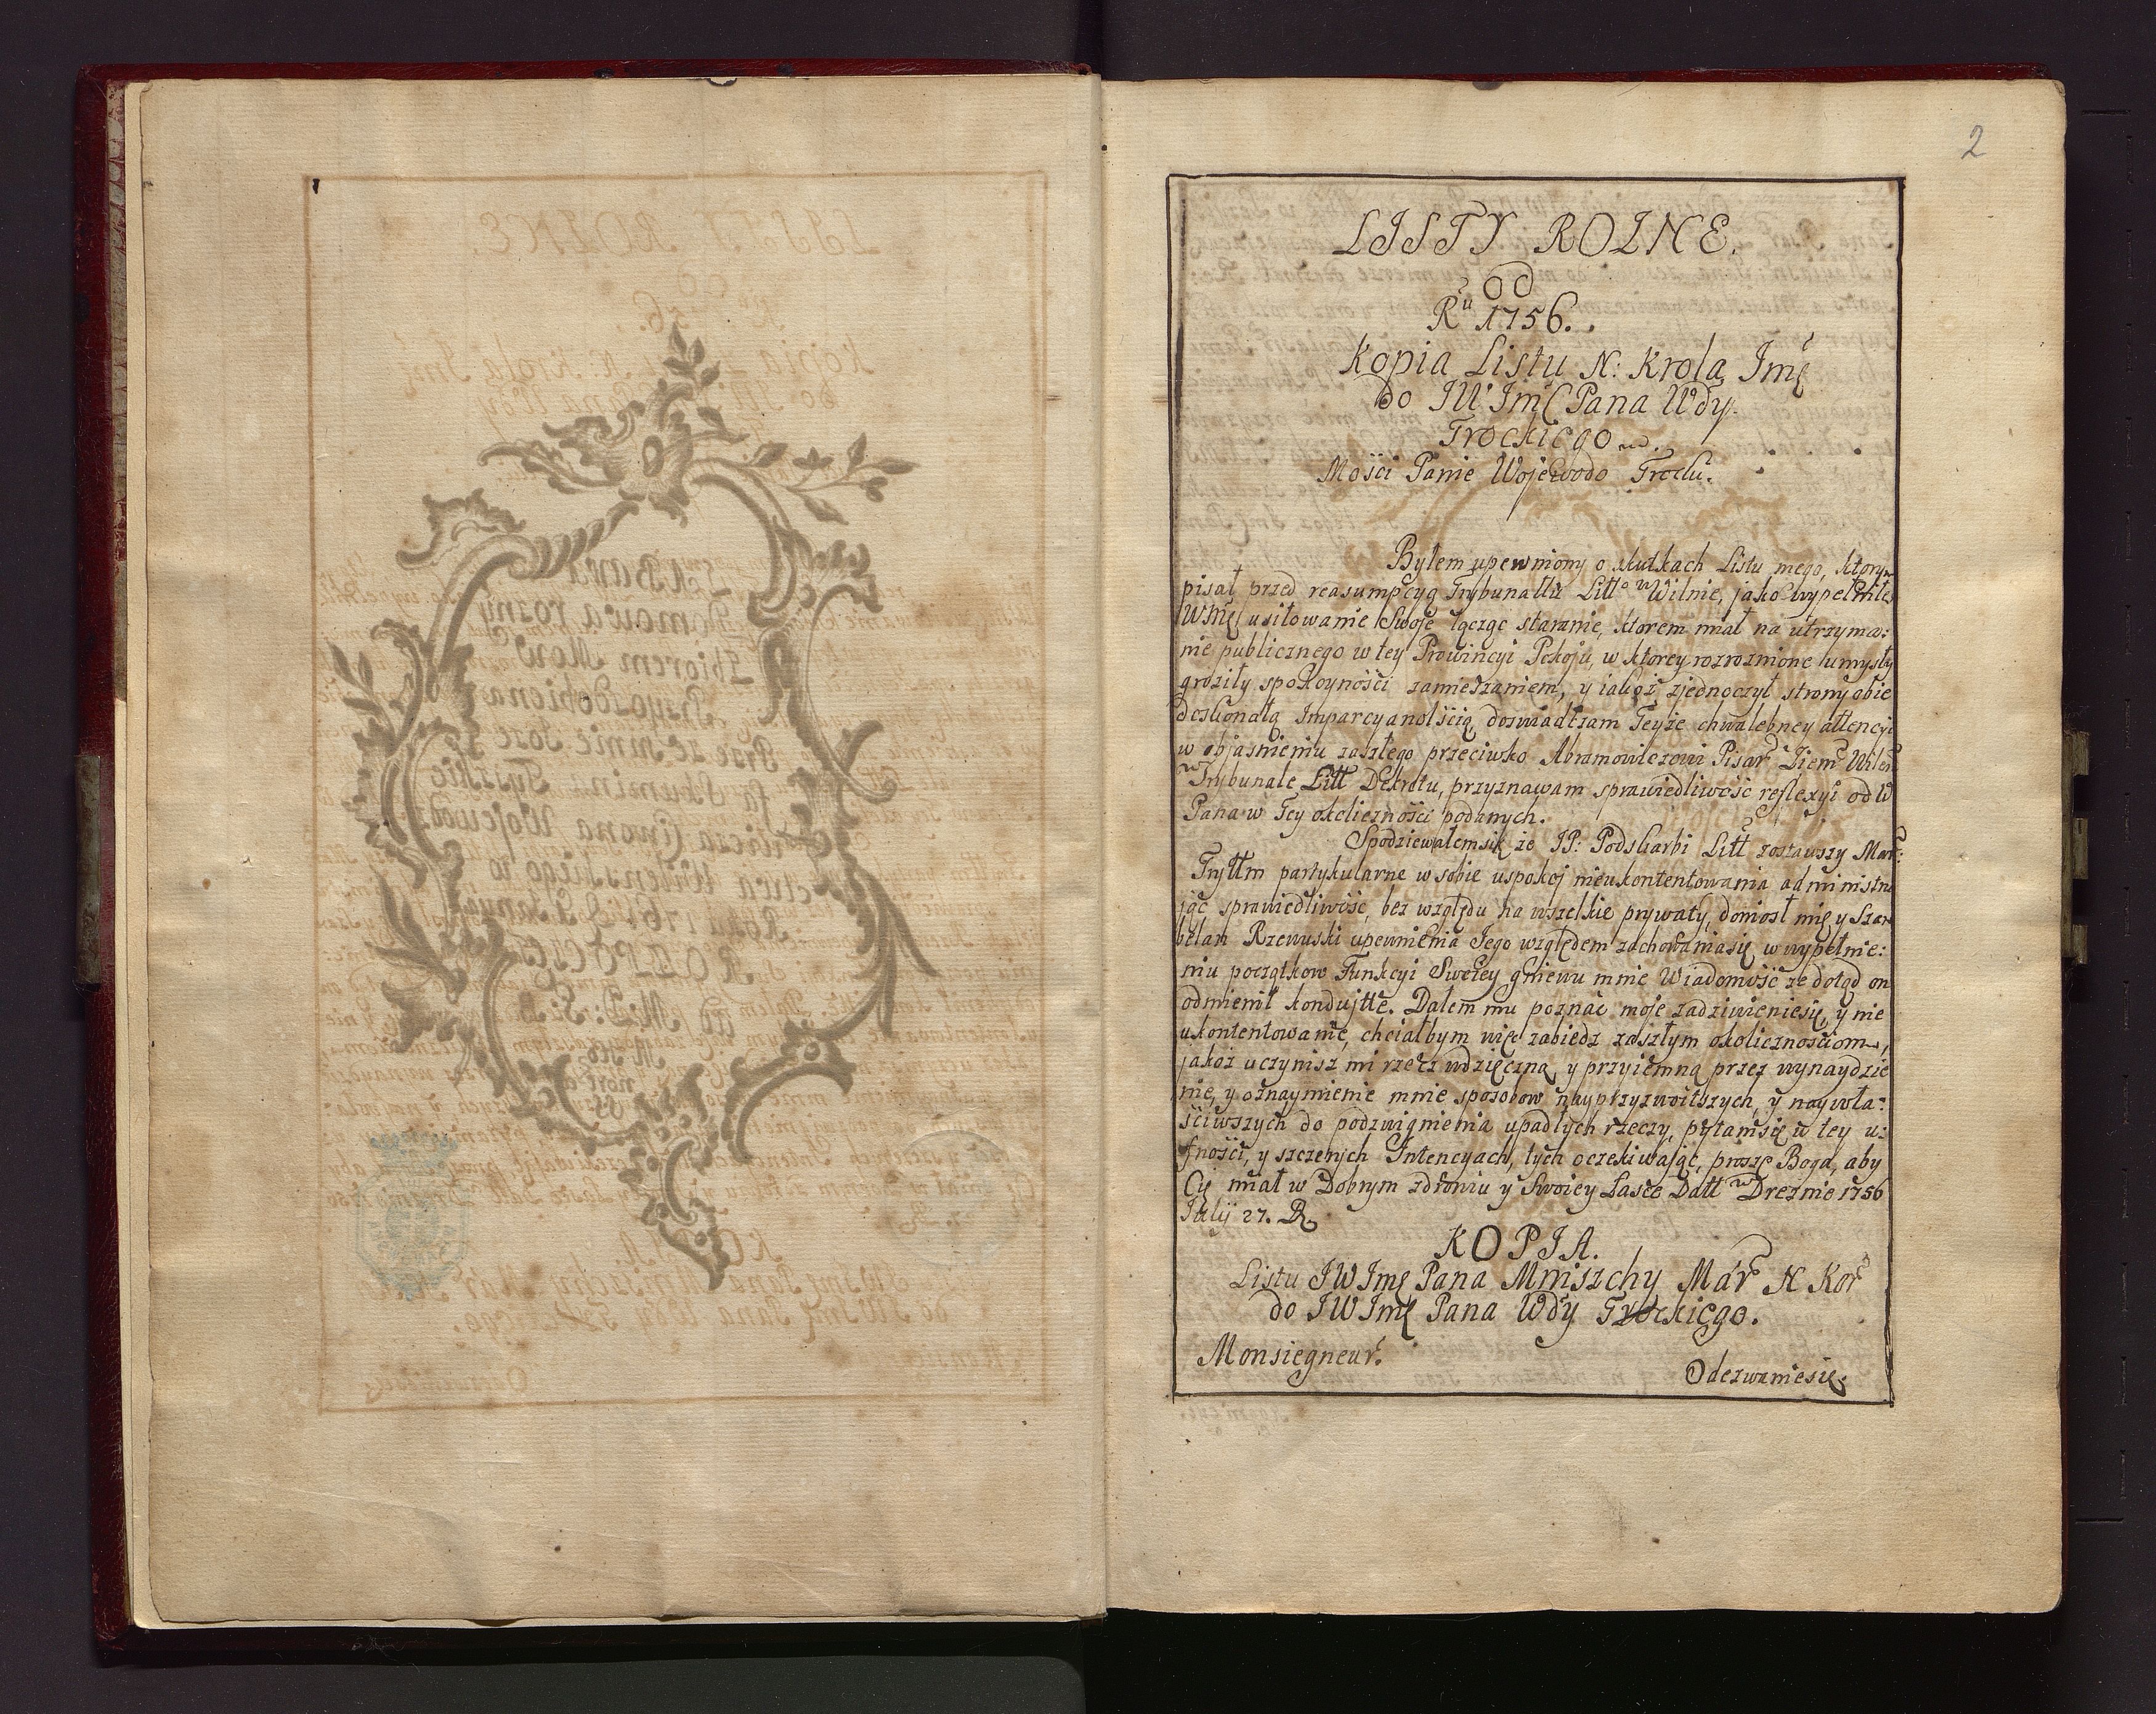 2
LISTY ROZNE.
od
Rᵘ 1756.
Kopia Listu N: Krola Jmę
do JW Jmę Pana Wdy.
Trockiego
Mości Panie Wojewodo Trocki.
Byłem upewniony o skutkach Listu mego, ktorym
pisał przed reasumpcyą Trybunału Litt. w Wilnie, jako wypełniłeś
usiłowanie Swoje łącząc staranie, ktorem miał na utrzyma:
nie publicznego w tey Prowincyi Pokoju, w ktorey rozroznione umysły
groziły spokoyności zamieszaniem, y iakoż zjednoczył strony obie
doskonałą Imparcyanolścią doswiadczam Teyże chwalebney attencyi
w objasnieniu zaszłego przeciwko Abramowiczowi Pisar Ziem Wilen
w Trybunale Litt Dekretu, przyznawam sprawiedliwość reflexyi od W
Pana w Tey okoliczności podanych.
Spodziewałemsię że JP: Podskarbi Litt zostawszy Mar:
partykularne w sobie uspokoj nieukontentowania administru
jąc sprawiedliwość, bez względu na wszelkie prywaty, doniosł mię y Szam
belan Rzewuski upewnienia Jego względem zachowaniasię w wypełnie:
niu początkow Funkcyi Swoiey gniewu mnie Wiadomość ze dotąd on
odmienił kondujtte. Dałem mu poznać moje zadziwieniesię, y nie
ukontentowanie, chciałbym więc zabiedz zaszłym okolicznościom,
jakoż uczynisz mi rzecz wdzięczną y przyiemną przez wynaydzie
nie, y oznaymienie mnie sposobow nayprzyzwoitszych, y naywła:
ściwszych do podzwignienia upadłych rzeczy, pytamsię w tey u:
fności, y szczerych Intencyach, tych oczekiwając, proszę Boga, aby
Cię miał w Dobrym zdrowiu y Swoiey Łasce Datt w Dreznie 1756
Julij 27. D.
KOPIA.
Listu JW Jmę Pana Mniszchy Mar N Kor
do JW Jmę Pana Wdy Trockiego.
Monsiegneur.
Odezwaniesię